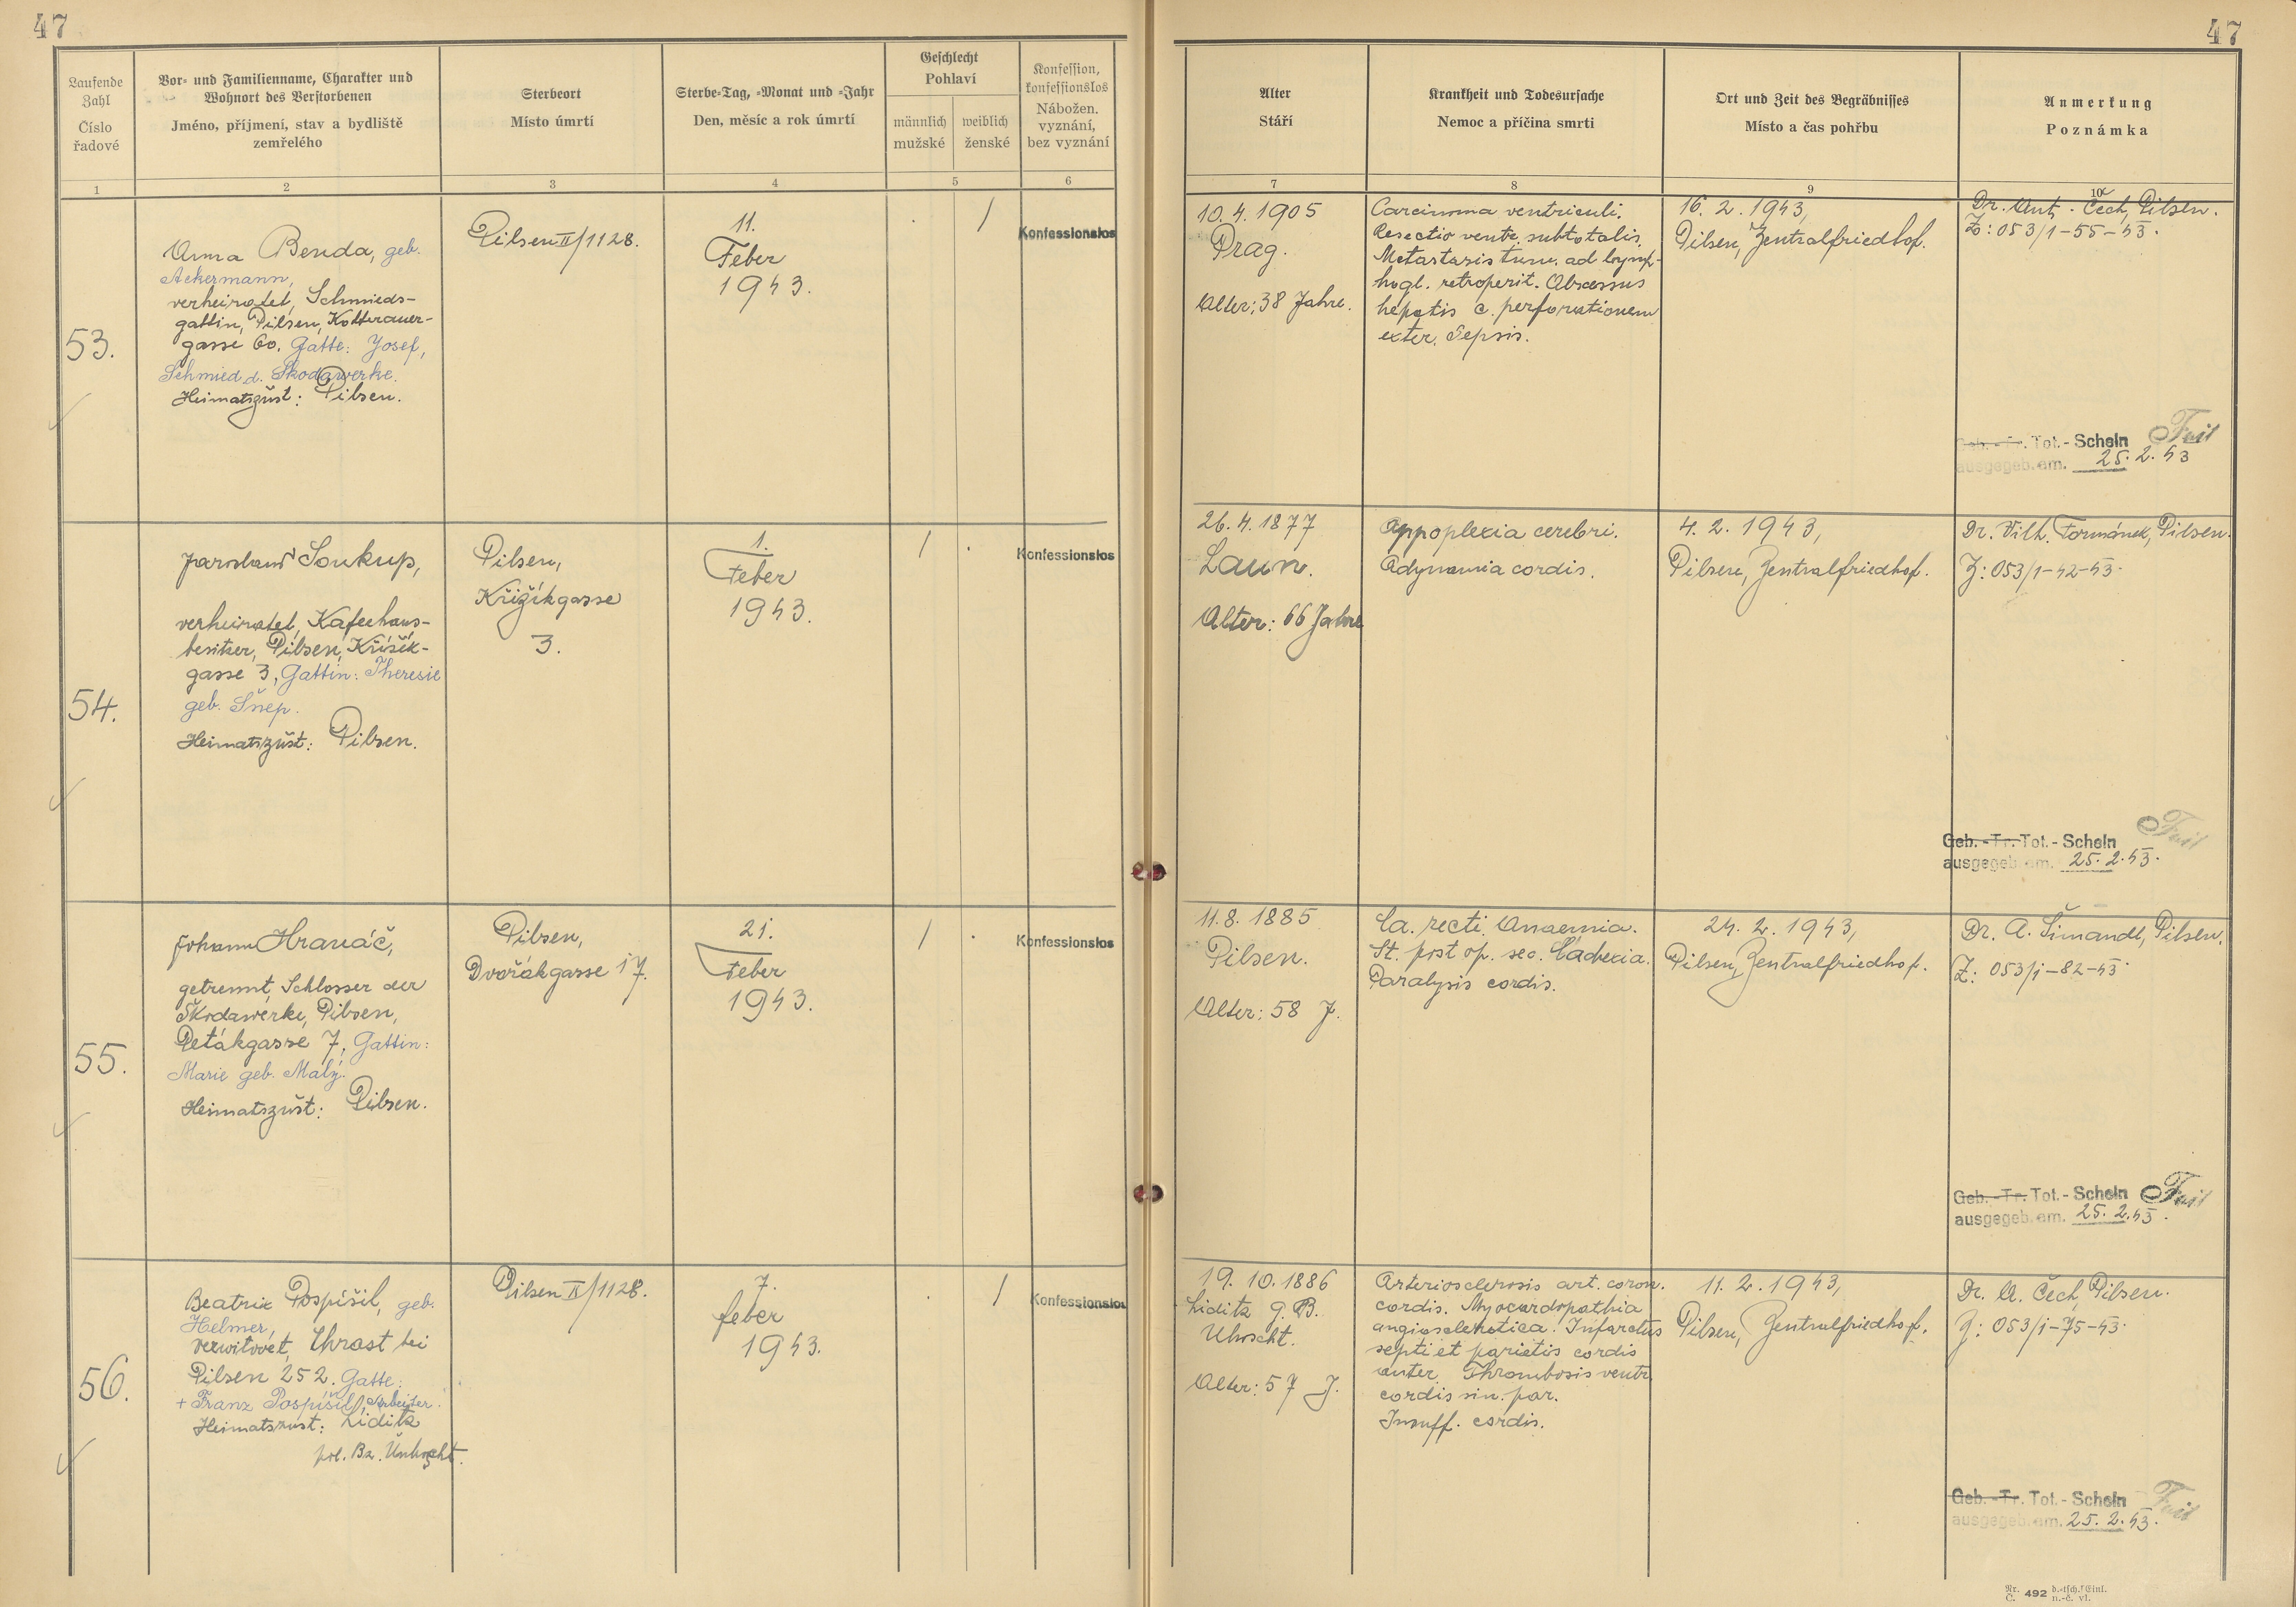 47
47
Laufende
Zahl
Číslo
řadové
Vor- und Familienname, Charakter und
Wohnort des Verstorbenen
Jméno, příjmení, stav a bydliště
zemřelého
Sterbeort
Místo úmrtí
Sterbe-Tag, -Monat und -Jahr
Den, měsíc a rok úmrtí
Geschlecht
Pohlaví
männlich
mužské
weiblich
ženské
Konfession,
konfessionslos
Nábožen.
vyznání,
bez vyznání
Alter
Stáří
Krankheit und Todesursache
Nemoc a příčina smrti
Ort und Zeit des Begräbnisses
Místo a čas pohřbu
Anmerkung
Poznámka
1
2
3
4
5
6
7
8
9
10
53.
Anna Benda, geb.
Ackermann,
verheiratet, Schmieds-
gattin, Pilsen, Kotterauer-
gasse 60. Gatte: Josef,
Schmied d. Škodawerke.
Heimatszüst: Pilsen.
Pilsen II/1128.
11.
Feber
1943.
/
Konfessionslos
10.4.1905
Prag.
Alter: 38 Jahre.
Carcinoma ventriculi.
Resectio ventr. subtotalis.
Metastasis tum. ad lymp-
hogl. retroperit. Abscessus
hepatis c. perforationem
exter. Sepsis.
16.2.1943,
Pilsen, Zentralfriedhof.
Dr. Ant. Čech, Pilsen.
Z: 053/1-55-43.
Geb.-Tr. Tot.-Schein
ausgegeb. am. 25.2.43
54.
Jaroslaus Soukup,
verheiratet, Kafeehaus-
besitzer, Pilsen, Křižík-
gasse 3, Gattin: Theresie
geb. Šnep.
Heimatszüst: Pilsen.
Pilsen,
Křižíkgasse
3.
1.
Feber
1943.
/
Konfessionslos
26.4.1877
Laun.
Alter: 66 Jahre
Appoplexia cerebri.
Adynamia cordis.
4.2.1943,
Pilsen, Zentralfriedhof.
Dr. Vilh. Formánek, Pilsen.
Z: 053/1-42-43.
Geb.-Tr. Tot.-Schein
ausgegeb. am. 25.2.43.
55.
Johann Hranáč,
getrennt, Schlosser der
Škodawerke, Pilsen,
Petákgasse 7, Gattin:
Marie geb. Malý.
Heimatszüst: Pilsen.
Pilsen,
Dvořákgasse 17.
21.
Feber
1943.
/
Konfessionslos
11.8.1885
Pilsen.
Alter: 58 J.
Ca. recti. Anaemia.
St. post op. sec. Cachexia.
Paralysis cordis.
24.2.1943,
Pilsen, Zentralfriedhof.
Dr. A. Šimandl, Pilsen.
Z: 053/1-82-43.
Geb.-Tr. Tot.-Schein
ausgegeb. am. 25.2.43.
56.
Beatrix Pospíšil, geb.
Helmer,
verwitwet, Chrast bei
Pilsen 252. Gatte:
+ Franz Pospíšil, Arbeiter.
Heimatszust: Liditz
pol. Bz.
Pilsen II/1128.
7.
feber
1943.
/
Konfessionslos
19.10.1886
Liditz G.B.
Alter: 57 J.
Arteriosclerosis art. coron.
cordis. Myocardopathia
angiosclerotica. Infarctus
septi et parietis cordis
anter. Thrombosis ventr.
cordis sin. par.
Insuff. cordis.
11.2.1943,
Pilsen, Zentralfriedhof.
Dr. A. Čech, Pilsen.
Z: 053/1-75-43.
Geb.-Tr. Tot.-Schein
ausgegeb. am. 25.2.43.
Nr. C. 492 d.-tsch. Einl. n.-č. vl.